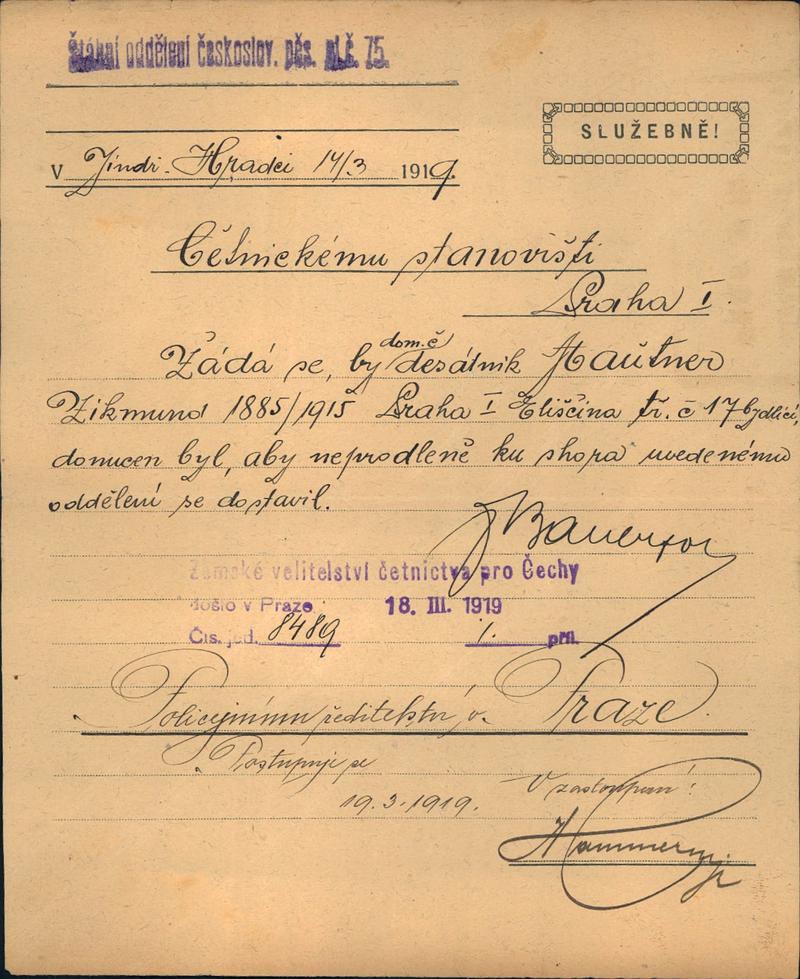 Štábní oddělení českoslov. pěš. pl. č. 75.
SLUŽEBNĚ!
V Jindř. Hradci 14/3 1919.
Četnickému stanovišti
Praha I.
Žádá se, by dom. č desátník Hautner
Zikmund 1885/1915 Praha I Eliščina tř. č 17 bydlící,
donucen byl, aby neprodleně ku shora uvedenému
oddělení se dostavil.
Zemské velitelství četnictva pro Čechy
došlo v Praze 18. III. 1919
Čís. jed. 8489 1. příl.
Policejnímu ředitelství v Praze.
Postupuje se
19.3.1919. V zastoupení: